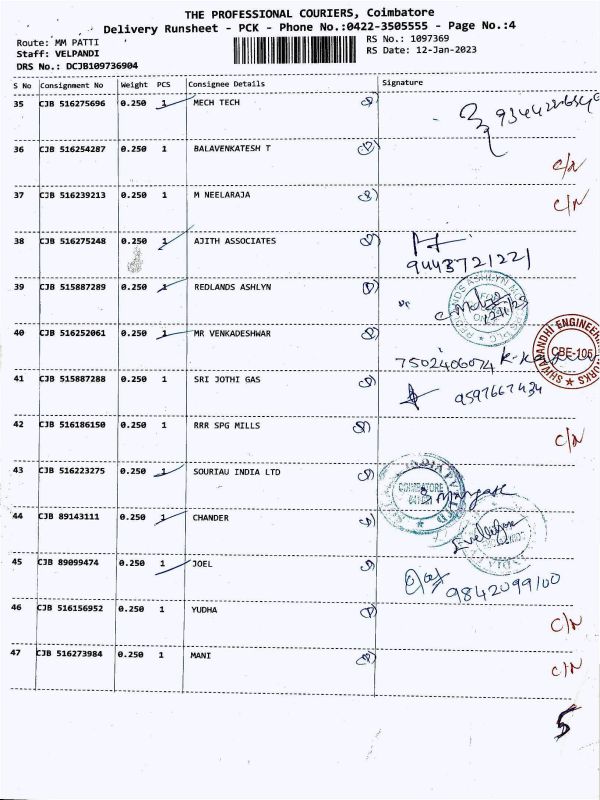 THE PROFESSIONAL COURIERS, Coimbatore
Delivery Runsheet - PCK - Phone No.:0422-3505555 - Page No.:4
Route: MM PATTI
RS No.: 1097369
Staff: VELPANDI
RS Date: 12-Jan-2023
DRS No.: DCJB109736904
S No Consignment No Weight PCS Consignee Details Signature
35 CJB 516275696 0.250 1 MECH TECH
36 CJB 516254287 0.250 1 BALAVENKATESH T C/N
37 CJB 516239213 0.250 1 M NEELARAJA C/N
38 CJB 516275248 0.250 1 AJITH ASSOCIATES
9443721221
39 CJB 515887289 0.250 1 REDLANDS ASHLYN
40 CJB 516252061 0.250 1 MR VENKADESHWAR
7502406074
CBE-106
41 CJB 515887288 0.250 1 SRI JOTHI GAS 9597667434
42 CJB 516186150 0.250 1 RRR SPG MILLS C/N
43 CJB 516223275 0.250 1 SOURIAU INDIA LTD
COIMBATORE
44 CJB 89143111 0.250 1 CHANDER
45 CJB 89099474 0.250 1 JOEL 9842099100
46 CJB 516156952 0.250 1 YUDHA C/N
47 CJB 516273984 0.250 1 MANI C/N
5